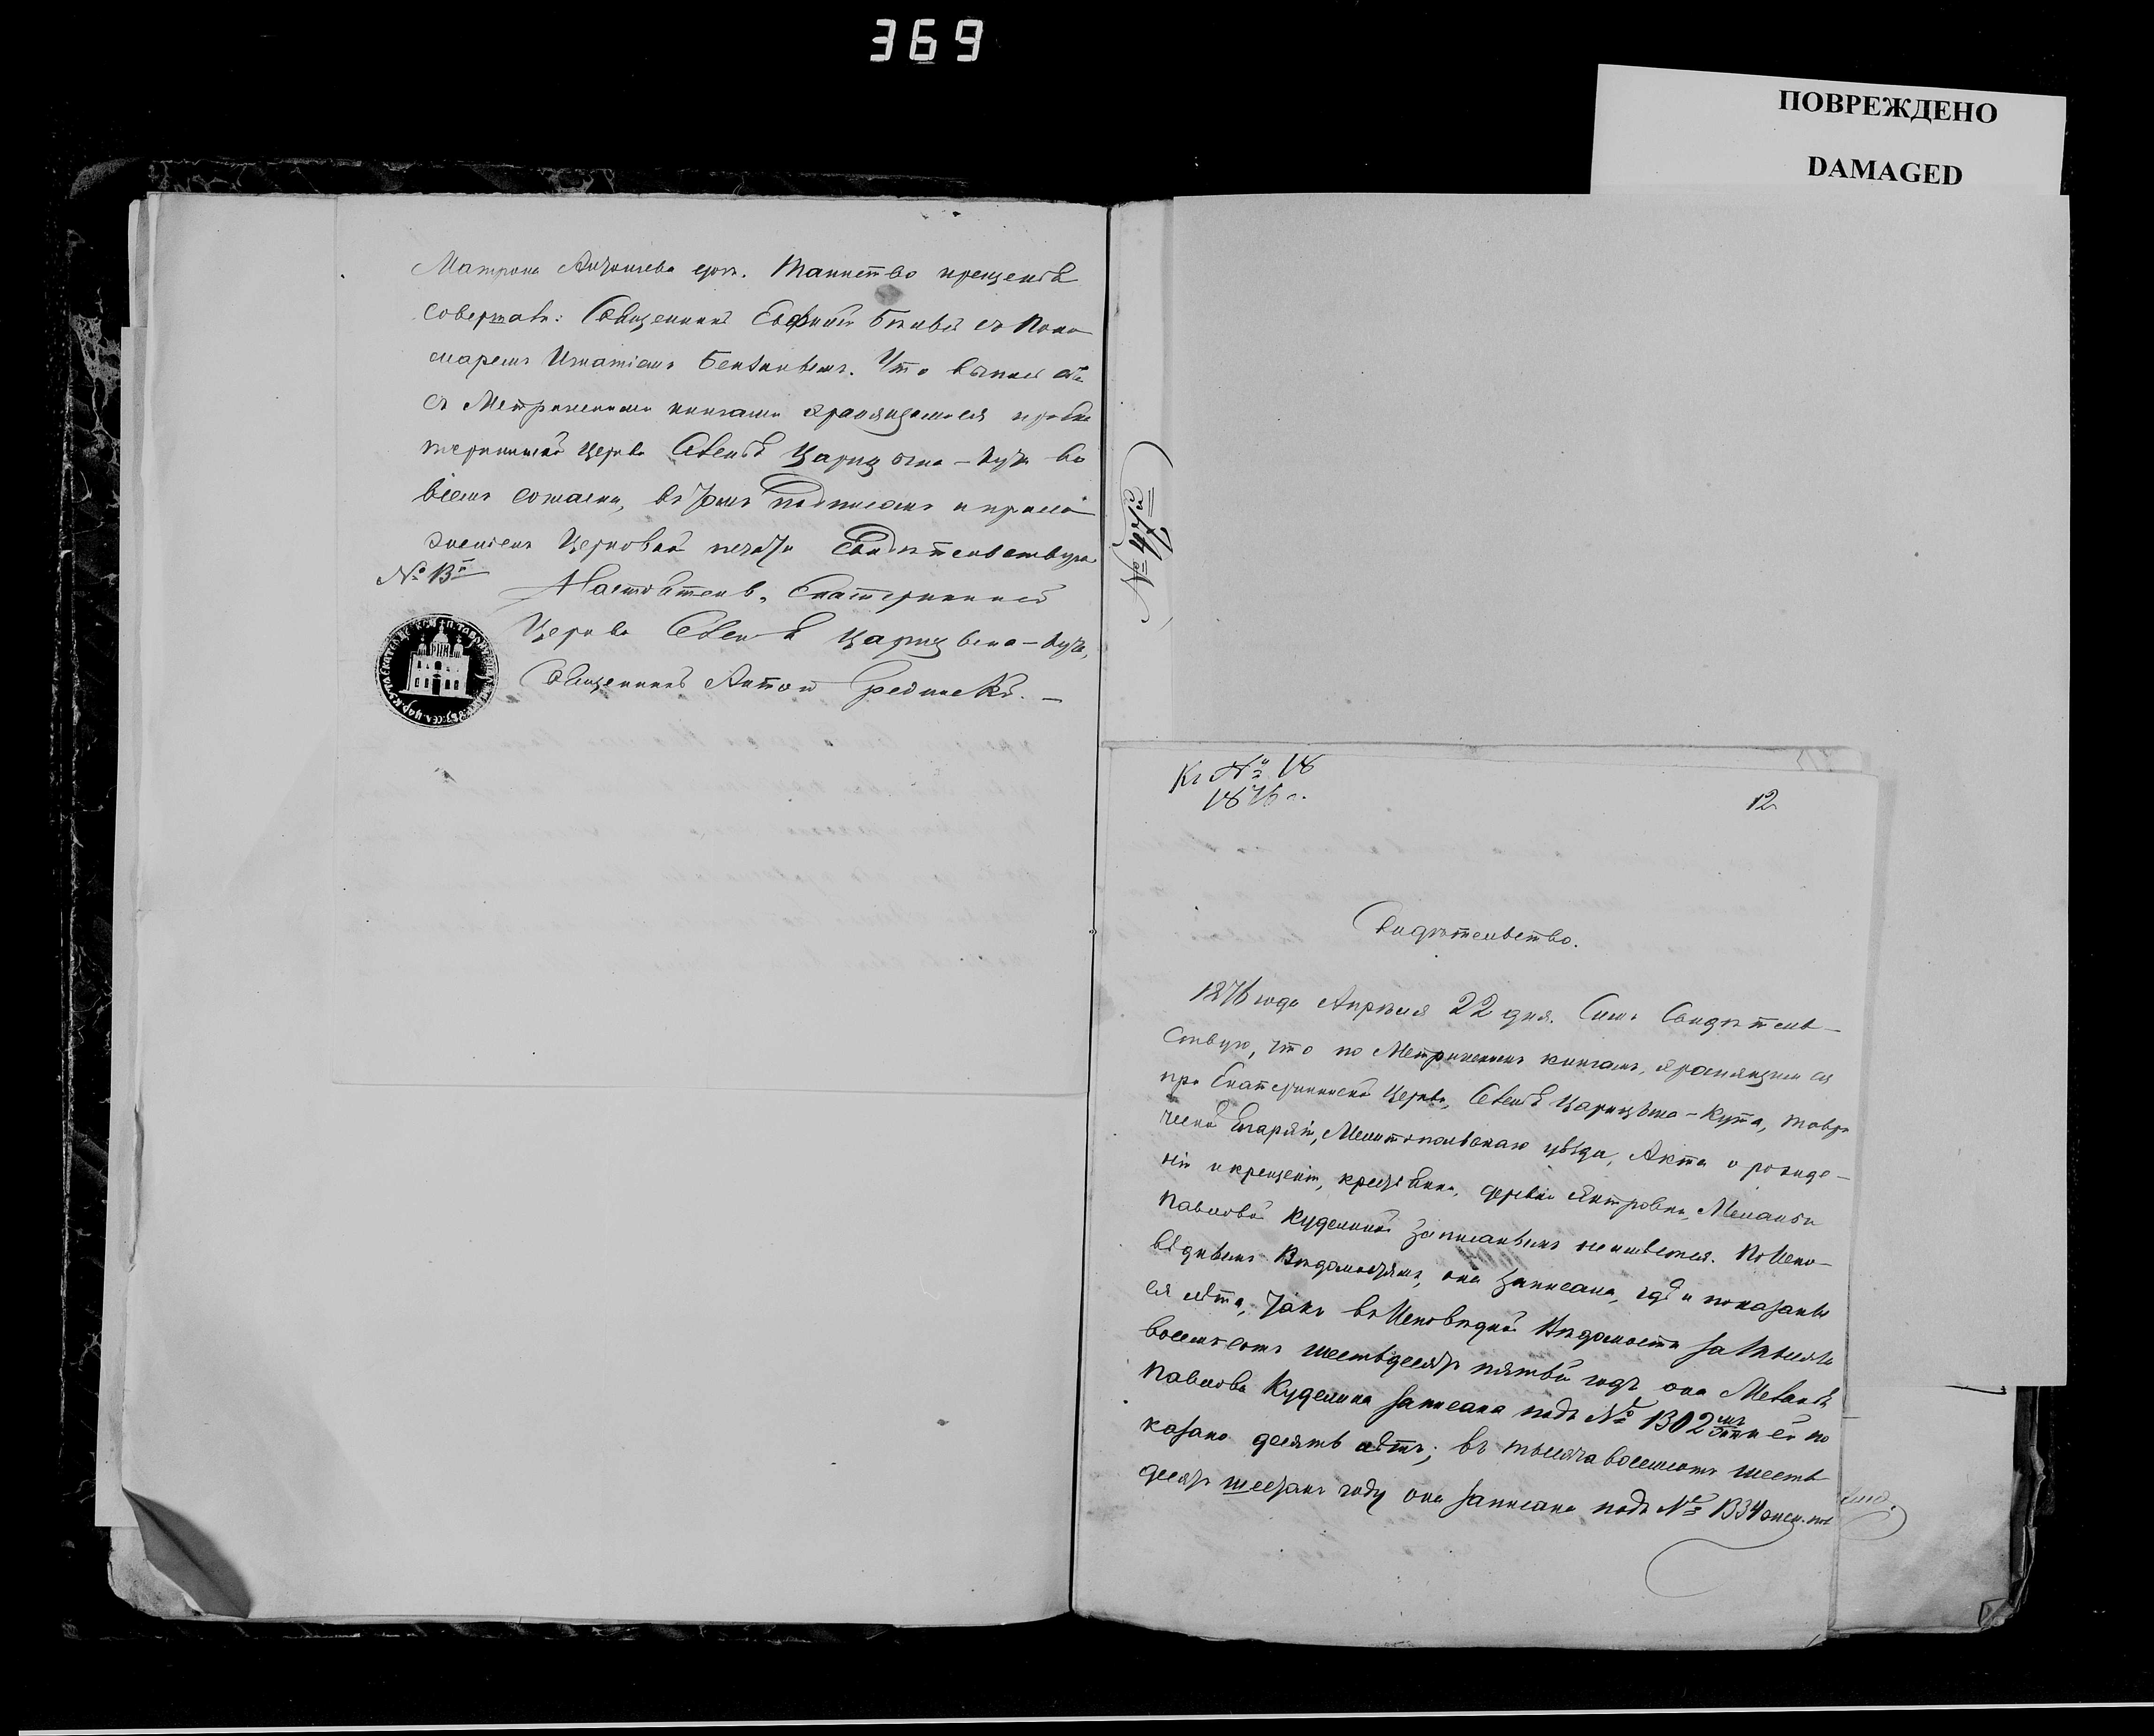 369
ПОВРЕЖДЕНО
DAMAGED
Матрона дочь. Таинство крещенія
совершалъ: Священникъ Евфимій съ Поно-
маремъ Игнатіемъ Что выпись сія
съ Метрическими книгами хранящимися при Ека-
терининской Церкви Селенія Царицына-Кута во
всемъ согласна, въ томъ подписомъ и прило-
женіемъ Церковной печати Свидѣтельствую
№ 13й
Настоятель, Екатерининской
Церкви Селенія Царицына-Кута,
Священникъ Антоній
Къ № 18
1876 г.
12
Свидѣтельство.
1876 года Апрѣля 22 дня. Симъ Свидѣтель-
ствую, что по Метрическимъ книгамъ, хранящимся
при Екатерининской Церкви, Селенія Царицына-Кута, Таври
ческой Епархіи, Мелитопольскаго уѣзда, Акта о рожде-
ніи и крещеніи, крестьянки, деревни Янтровки, Меланіи
Павловой Куделиной записаннымъ не имѣется. По Испо-
вѣднымъ Вѣдомостямъ, она записана, гдѣ и показаны
ея лѣта, такъ въ Исповѣдной Вѣдомости за тысяча
восемьсотъ шестьдесятъ пятый годъ она Меланія
Павлова Куделина записана подъ № 1302 и ей по
казано десять лѣтъ; въ тысяча восемьсотъ шесть
десятъ шестомъ году она записана подъ № 1334